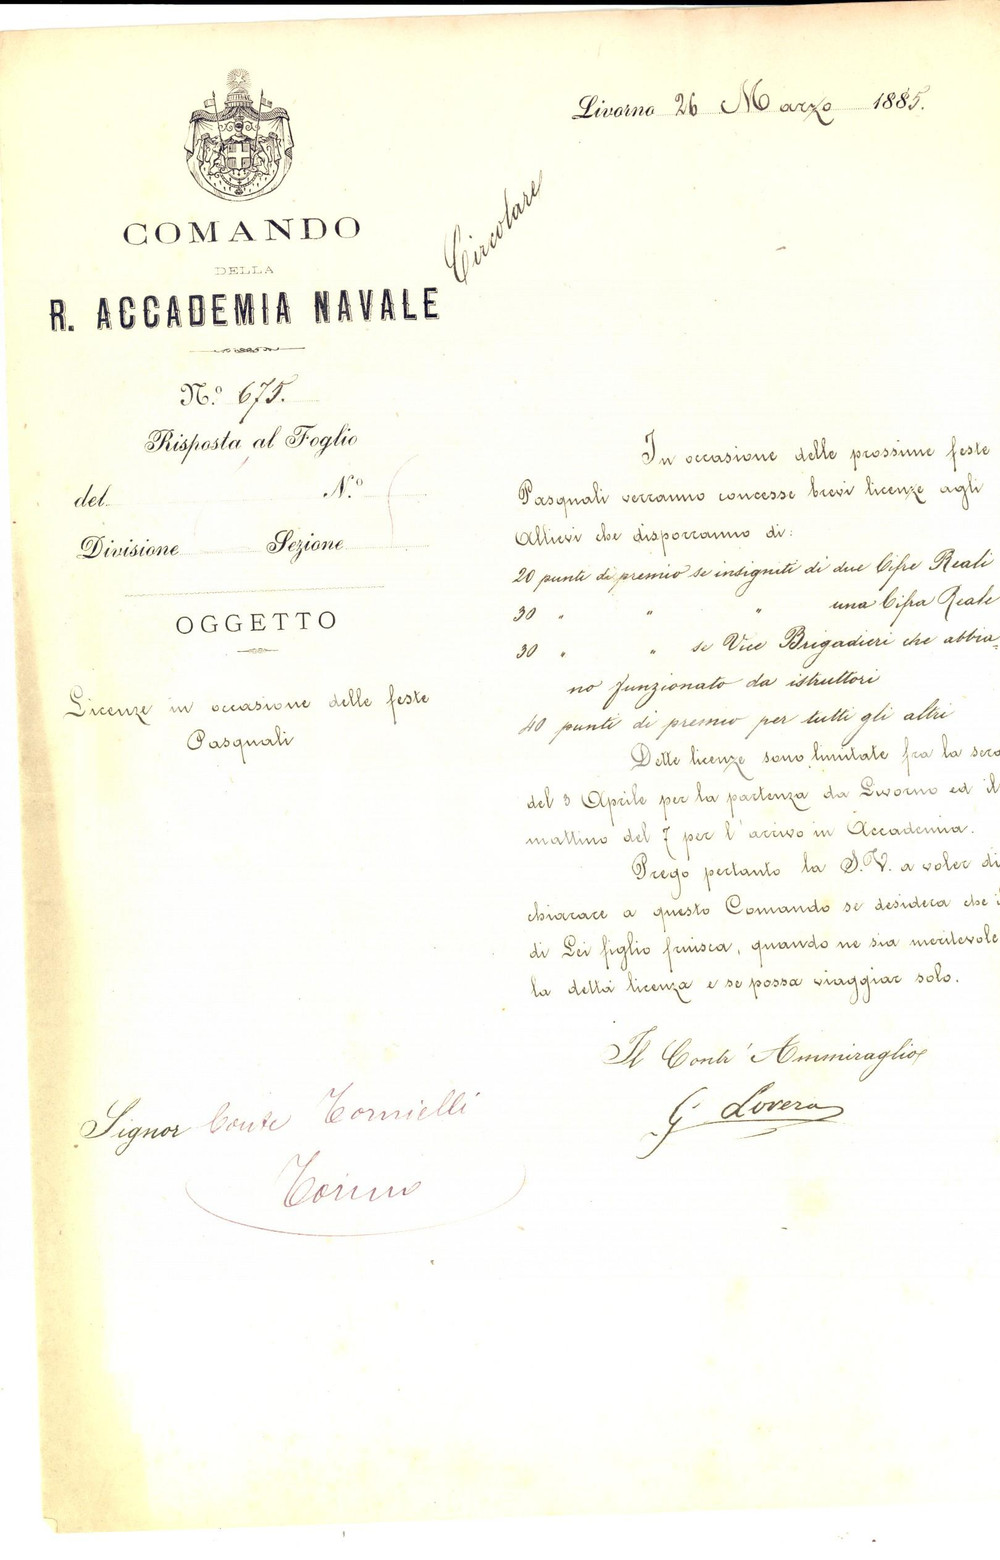 Livorno 26 Marzo 1885.
Circolare
COMANDO
DELLA
R. ACCADEMIA NAVALE
N.º 675.
Risposta al Foglio
del N.º
Divisione Sezione
OGGETTO
Licenze in occasione delle feste
Pasquali
In occasione delle prossime feste
Pasquali verranno concesse brevi licenze agli
Allievi che disporranno di:
20 punti di premio se insigniti di due Cifre Reali
30 " " " una Cifra Reale
30 " " se Vice Brigadieri che abbia=
no funzionato da istruttori
40 punti di premio per tutti gli altri
Dette licenze sono limitate fra la sera
del 3 Aprile per la partenza da Livorno ed il
mattino del 7 per l'arrivo in Accademia.
Prego pertanto la S.V. a voler di
chiarare a questo Comando se desidera che i
di Lei figlio fruisca, quando ne sia meritevole
la detta licenza e se possa viaggiar solo.
Il Contr'Ammiraglio
G. Lovera
Signor Conte Tornielli
Torino